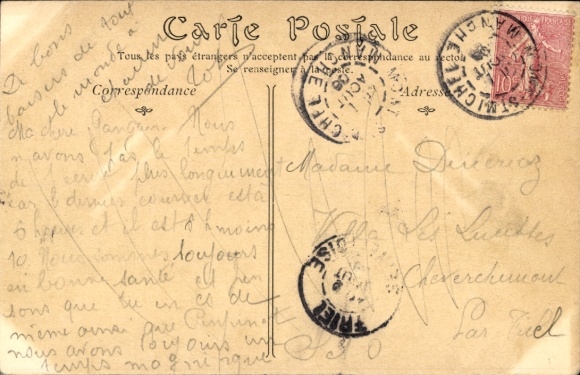 De bons
baisers de tout
le monde à
chacun
de vous
Carte Postale
Tous les pays étrangers n'acceptent pas la correspondance au recto
Se renseigner à la poste.
Correspondance
Adresse
Ma chère Nous
n'avons pas le temps
de plus longuement
car le dernier courrier est à
6 heures et il est 6h moins
10. Nous sommes toujours
en bonne santé et pen
sons que tu en es de
même ainsi que
nous avons toujours un
temps magnifique
Madame
Villa Les Lucettes
Cheverchemont
Par Triel
S & O
MONT-ST-MICHEL
MANCHE
TRIEL
OISE